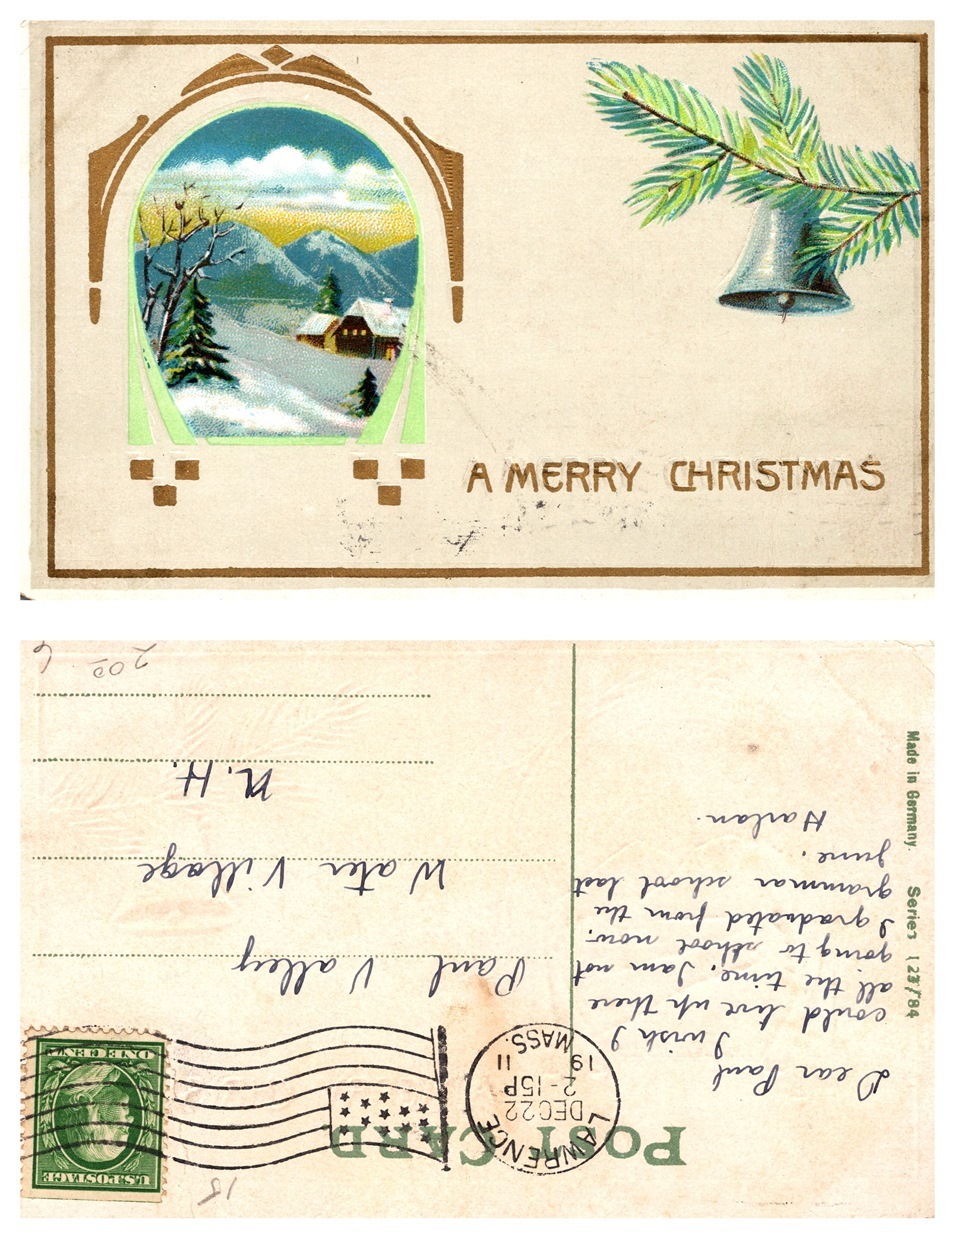 A MERRY CHRISTMAS
POST CARD
U.S. POSTAGE
ONE CENT
LAWRENCE
DEC 22
2-15P
19 11
MASS.
18
Dear Paul
I wish I
could live up there
all the time. I am not
going to school now.
I graduated from the
grammar school last
June.
Harlan.
Paul Valley
Water Village
N.H.
200
6
Made in Germany. Series 123/84